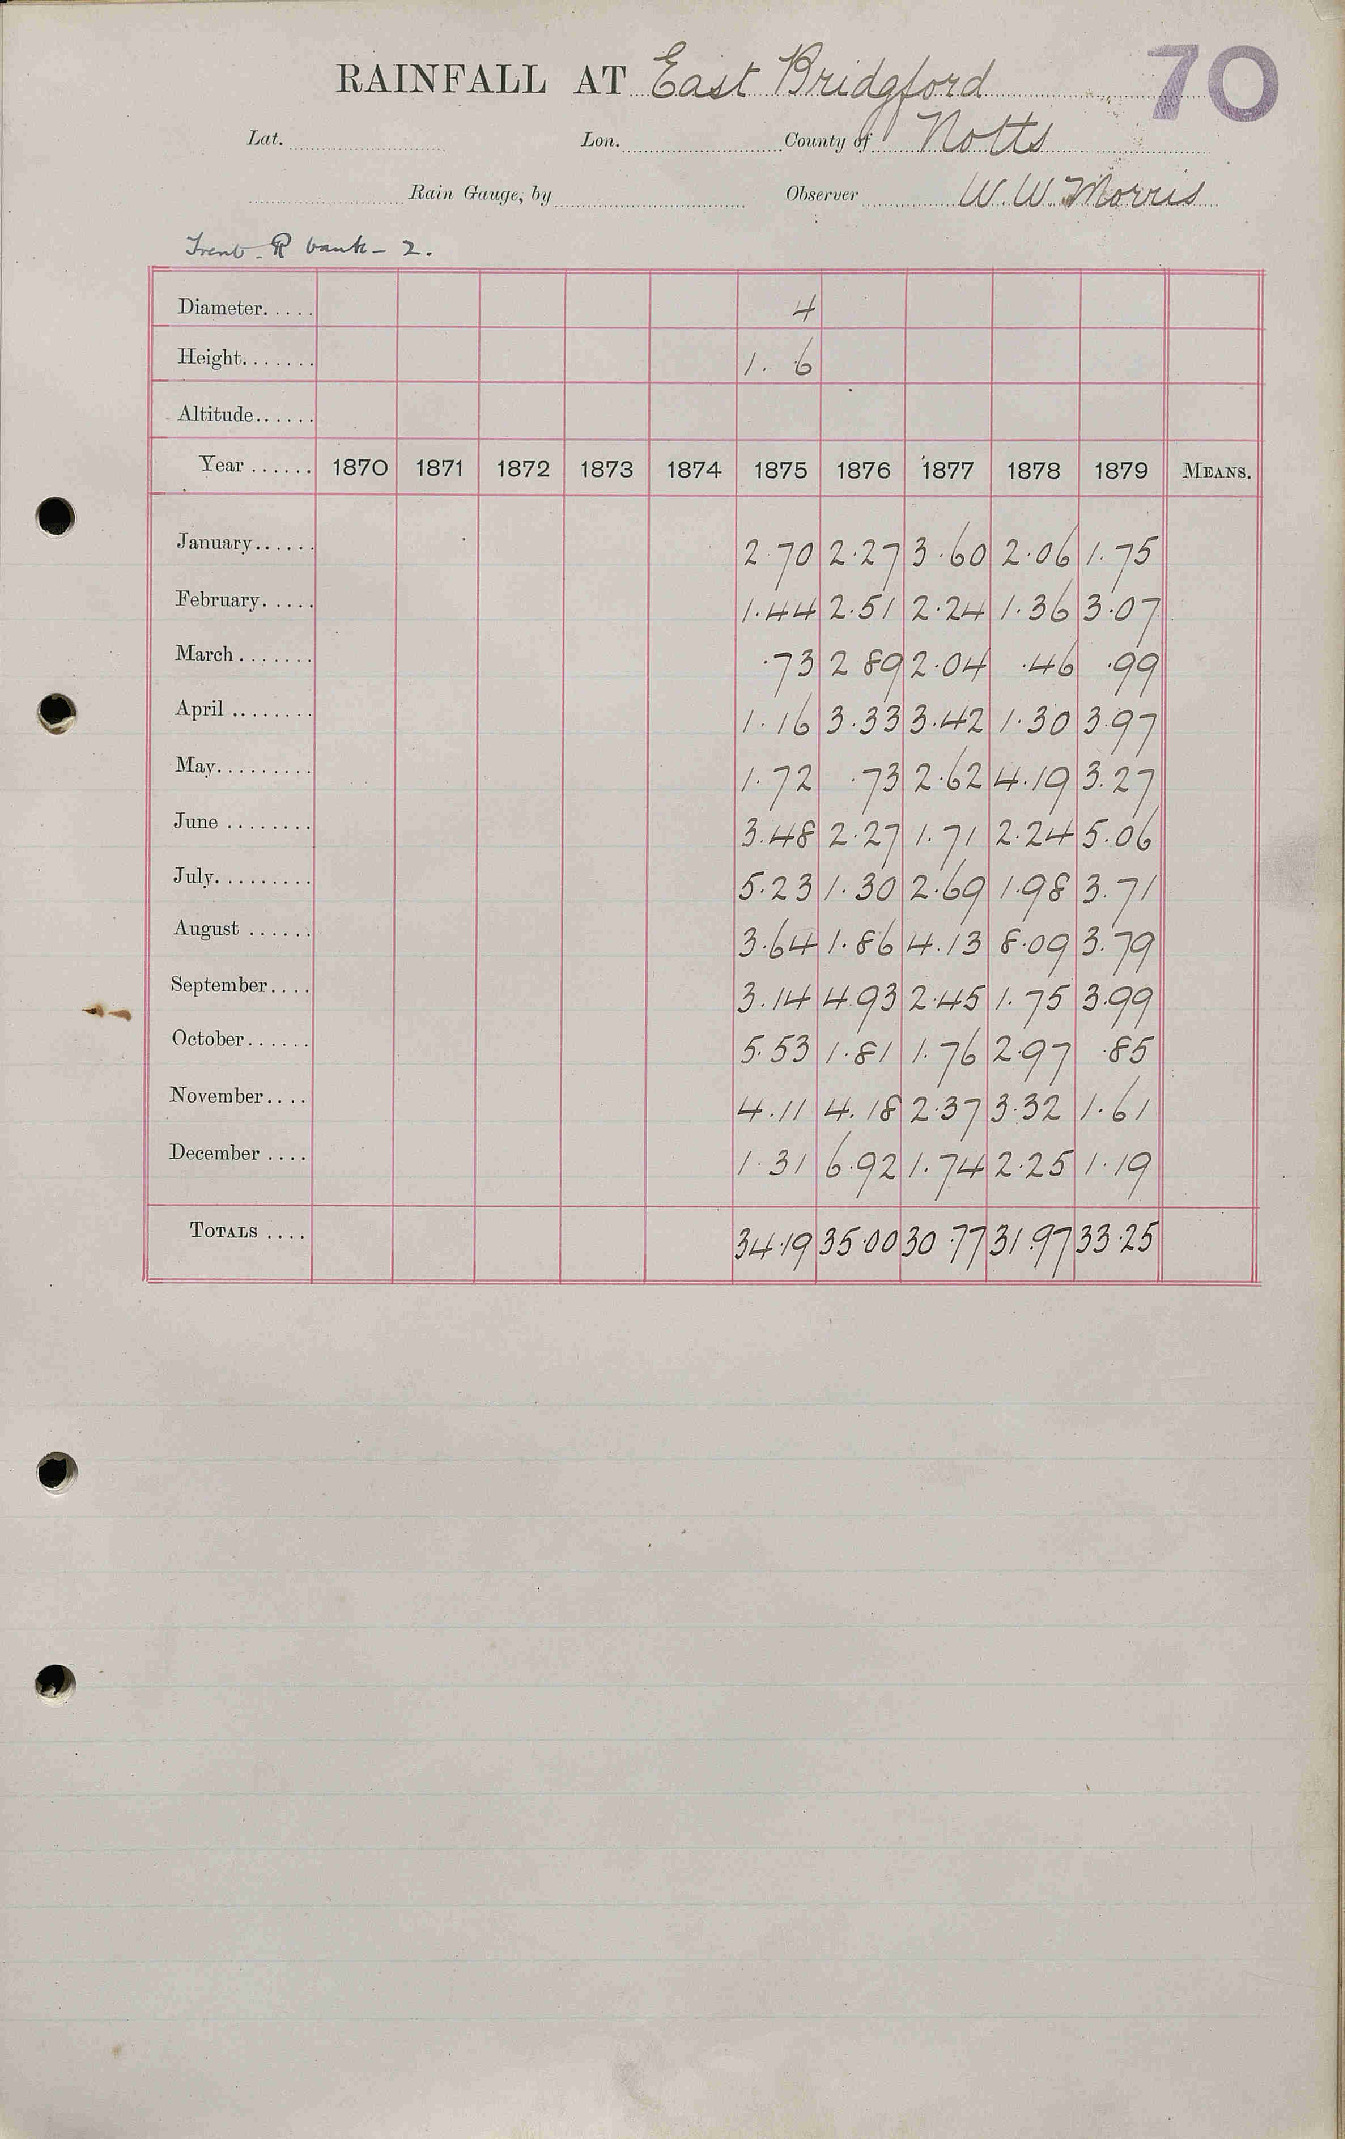 RAINFALL AT East Bridgford 70
Lat. Lon. County of Notts
Rain Gauge, by Observer W. W. Morris
Trent R bank - 2.
Diameter..... 4
Height....... 1. 6
Altitude......
Year ...... 1870 1871 1872 1873 1874 1875 1876 1877 1878 1879 MEANS.
January...... 2.70 2.27 3.60 2.06 1.75
February..... 1.44 2.51 2.24 1.36 3.07
March ....... .73 2 89 2.04 .46 .99
April ........ 1.16 3.33 3.42 1.30 3.97
May......... 1.72 .73 2.62 4.19 3.27
June ........ 3.48 2.27 1.71 2.24 5.06
July......... 5.23 1.30 2.69 1.98 3.71
August ...... 3.64 1.86 4.13 8.09 3.79
September.... 3.14 4.93 2.45 1.75 3.99
October...... 5.53 1.81 1.76 2.97 .85
November.... 4.11 4.18 2.37 3.32 1.61
December .... 1.31 6.92 1.74 2.25 1.19
TOTALS .... 34.19 35.00 30.77 31.97 33.25